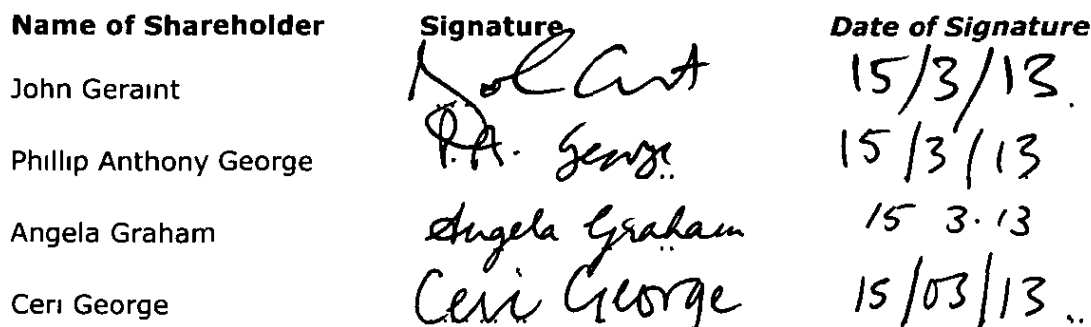 Name of Shareholder Signature Date of Signature
John Geraint 15/3/13
Phillip Anthony George P.A. George 15/3/13
Angela Graham Angela Graham 15 3.13
Ceri George Ceri George 15/03/13